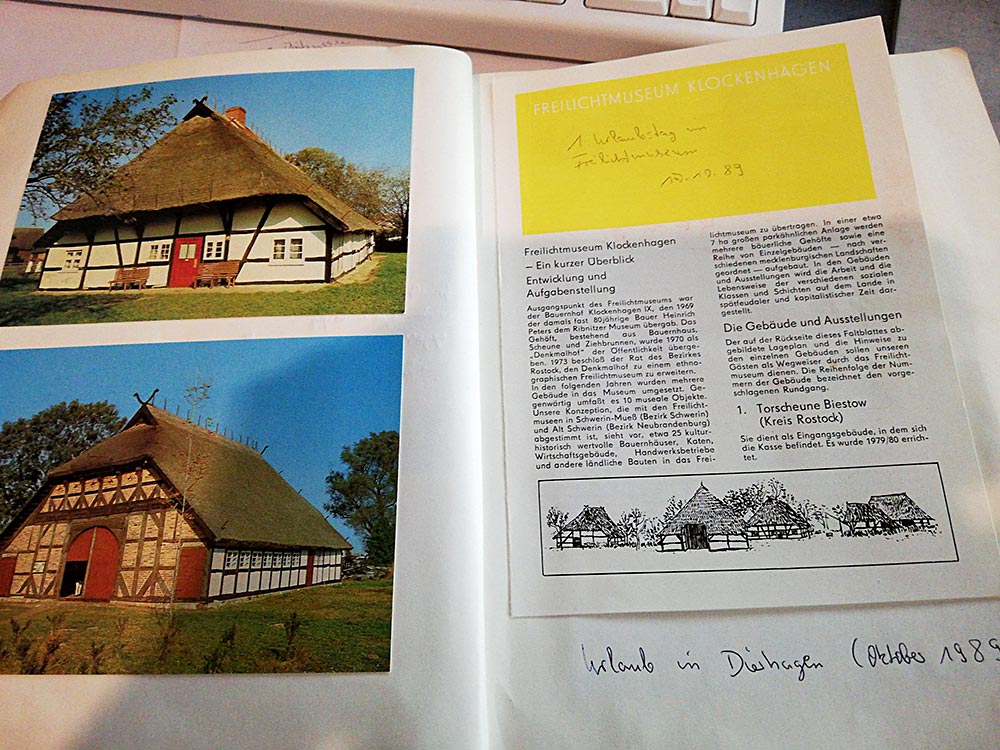 FREILICHTMUSEUM KLOCKENHAGEN
1. Urlaubstag im
Freilichtmuseum
17.10.89
Freilichtmuseum Klockenhagen
– Ein kurzer Überblick
Entwicklung und
Aufgabenstellung
Ausgangspunkt des Freilichtmuseums war
der Bauernhof Klockenhagen IX, den 1969
der damals fast 80jährige Bauer Heinrich
Peters dem Ribnitzer Museum übergab. Das
Gehöft, bestehend aus Bauernhaus,
Scheune und Ziehbrunnen, wurde 1970 als
„Denkmalhof" der Öffentlichkeit überge-
ben. 1973 beschloß der Rat des Bezirkes
Rostock, den Denkmalhof zu einem ethno-
graphischen Freilichtmuseum zu erweitern.
In den folgenden Jahren wurden mehrere
Gebäude in das Museum umgesetzt. Ge-
genwärtig umfaßt es 10 museale Objekte.
Unsere Konzeption, die mit den Freilicht-
museen in Schwerin-Mueß (Bezirk Schwerin)
und Alt Schwerin (Bezirk Neubrandenburg)
abgestimmt ist, sieht vor, etwa 25 kultur-
historisch wertvolle Bauernhäuser, Katen,
Wirtschaftsgebäude, Handwerksbetriebe
und andere ländliche Bauten in das Frei-
lichtmuseum zu übertragen. In einer etwa
7 ha großen parkähnlichen Anlage werden
mehrere bäuerliche Gehöfte sowie eine
Reihe von Einzelgebäuden — nach ver-
schiedenen mecklenburgischen Landschaften
geordnet — aufgebaut. In den Gebäuden
und Ausstellungen wird die Arbeit und die
Lebensweise der verschiedenen sozialen
Klassen und Schichten auf dem Lande in
spätfeudaler und kapitalistischer Zeit dar-
gestellt.
Die Gebäude und Ausstellungen
Der auf der Rückseite dieses Faltblattes ab-
gebildete Lageplan und die Hinweise zu
den einzelnen Gebäuden sollen unseren
Gästen als Wegweiser durch das Freilicht-
museum dienen. Die Reihenfolge der Num-
mern der Gebäude bezeichnet den vorge-
schlagenen Rundgang.
1. Torscheune Biestow
(Kreis Rostock)
Sie dient als Eingangsgebäude, in dem sich
die Kasse befindet. Es wurde 1979/80 errich-
tet.
Urlaub in Dierhagen (Oktober 1989